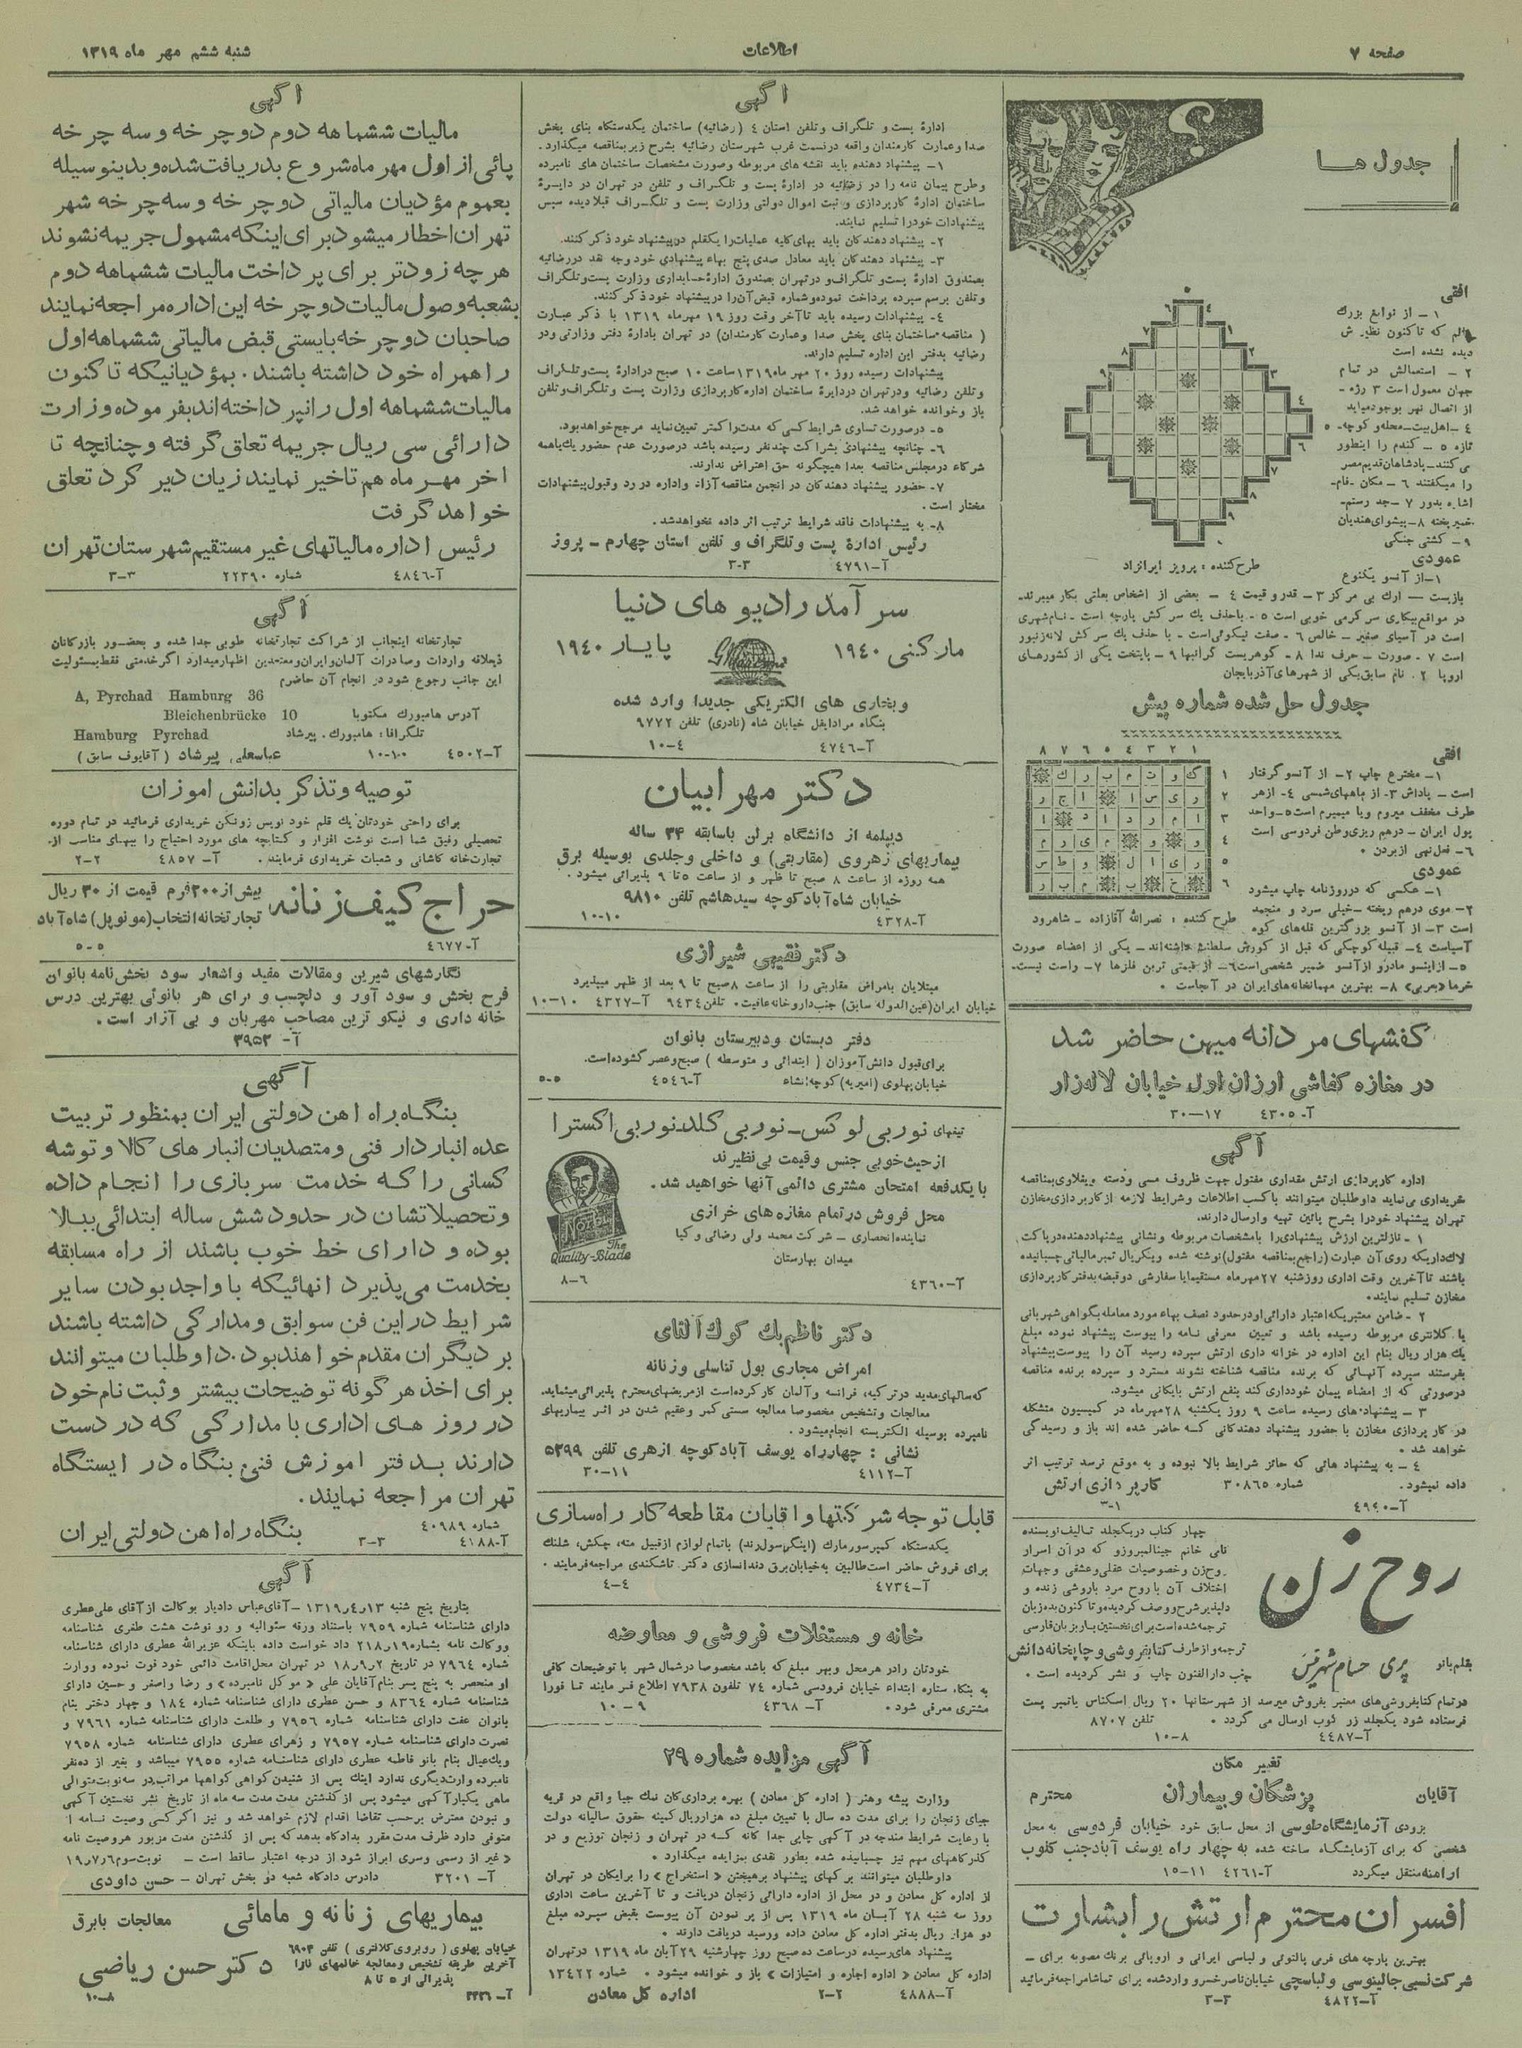 صفحه ۷
اطلاعات
شنبه ششم مهر ماه ۱۳۱۹
جدول ها
افقی
۱ – از نوابغ بزرك
دیده نشده است
۲ – استعمالش در تمام
جهان معمول است ۳ رژه –
از اتصال نهر بوجود میاید
۴ –اهل بیت– محله و کوچه–
تازه ۵ – گندم را اینطور
می کنند– پادشاهان قدیم مصر
را میگفتند ۶ – مکان –فام–
اشاره بدور ۷ – جد رستم–
خمیر پخته ۸– پیشوای هندیان
۹ – کشتی جنگی
عمودی
۱–از آنسو یکنوع
طرح کننده : پرویز ایرانزاد
بازیست — ارك بی مرکز ۳ – قدر و قیمت ۴ – بعضی از اشخاص بعلتی بکار میبرند.
در مواقع بیکاری سرگرمی خوبی است ۵ – باحذف یك سرکش پارچه است – نام شهری
است در آسیای صغیر – خالص ۶ – صفت نیکوئی است – با حذف یك سرکش لانه زنبور
است ۷ – صورت – حرف ندا ۸ – گوهریست گرانبها ۹ – پایتخت یکی از کشورهای
اروپا ۲۰ نام سابق یکی از شهرهای آذربایجان
جدول حل شده شماره پیش
افقی
۱– مخترع چاپ ۲– از آنسو گرفتار
است – پاداش ۳– از ماههای شمسی ۴– ازهر
طرف مخفف میروم ویا میمیرم است ۵–واحد
پول ایران – درهم ریزی وطن فردوسی است
۶– فعل نهی از بردن .
عمودی
۱– عکسی که در روزنامه چاپ میشود
۲– موی درهم ریخته –خیلی سرد و منجمد
طرح کننده : نصرالله آقازاده – شاهرود
است ۳– از آنسو بزرگترین قله های کوه
آسیاست ۴– قبیله کوچکی که قبل از کورش سلطنت داشته اند– یکی از اعضاء صورت
۵– ازاینسو مادرو ازآنسو ضمیر شخصی است ۶– از قیمتی ترین فلزها ۷– راست نیست–
خرما (بعربی) ۸– بهترین مهمانخانه های ایران در آنجاست .
کفشهای مردانه میهن حاضر شد
در مغازه کفاشی ارزان اول خیابان لاله زار
آ– ۴۳۰۵ ۱۷—۳۰
آگهی
اداره کارپردازی ارتش مقداری مفتول جهت ظروف مسی ودسته ویغلاوی بمناقصه
خریداری می نماید داوطلبان میتوانند با کسب اطلاعات وشرایط لازمه از کارپردازی مخازن
تهران پیشنهاد خودرا بشرح پائین تهیه وارسال دارند.
۱ – نازلترین ارزش پیشنهادی را بامشخصات مربوطه ونشانی پیشنهاد دهنده درپاکت
لاك داریکه روی آن عبارت (راجع بمناقصه مفتول) نوشته شده ویکریال تمبر مالیاتی چسبانیده
باشند تا آخرین وقت اداری روزشنبه ۲۷ مهرماه مستقیما یا سفارشی دوقبضه بدفتر کارپردازی
مخازن تسلیم نمایند.
۲ – ضامن معتبریکه اعتبار دارائی او درحدود نصف بهاء مورد معامله بگواهی شهربانی
یا کلانتری مربوطه رسیده باشد و تعیین معرفی نامه را پیوست پیشنهاد نموده مبلغ
یك هزار ریال بنام این اداره در خزانه داری ارتش سپرده رسید آن را پیوست پیشنهاد
بفرستند سپرده آنهائی که برنده مناقصه شناخته نشوند مسترد و سپرده برنده مناقصه
درصورتی که از امضاء پیمان خودداری کند بنفع ارتش بایگانی میشود.
۳ – پیشنهادهای رسیده ساعت ۹ روز یکشنبه ۲۸ مهرماه در کمیسیون متشکله
در کار پردازی مخازن با حضور پیشنهاد دهندگانی کسه حاضر شده اند باز و رسیدگی
خواهد شد .
۴ – به پیشنهاد هائی که حائز شرایط بالا نبوده و به موقع نرسد ترتیب اثر
داده نمیشود. شماره ۳۰۸۶۵ کارپردازی ارتش
آ–۴۹۴۰ ۱–۳
روح زن
چهار کتاب دریکجلد تالیف نویسنده
نامی خانم جینالمبروزو که درآن اسرار
روح زن وخصوصیات عقلی وعشقی وجهات
اختلاف آن با روح مرد باروشی زنده و
دلپذیر شرح ووصف گردیده و تاکنون بده زبان
ترجمه شده است برای نخستین بار بزبان فارسی
بقلم بانو پری حسام شهرئیس
ترجمه وازطرف کتابفروشی وچاپخانه دانش
جنب دارالفنون چاپ و نشر گردیده است .
درتمام کتابفروشی های معتبر بفروش میرسد از شهرستانها ۲۰ ریال اسکناس یاتمبر پست
فرستاده شود یکجلد زر کوب ارسال می گردد . تلفن ۸۷۰۷
آ–۴۴۸۷ ۸–۱۰
تغییر مکان
آقایان پزشکان و بیماران محترم
بزودی آزمایشگاه طوسی از محل سابق خود خیابان فردوسی به محل
شخصی که برای آزمایشگاه ساخته شده به چهار راه یوسف آباد جنب کلوب
ارامنه منتقل میگردد آ–۴۲۶۱ ۱۱–۱۵
افسران محترم ارتش را بشارت
بهترین پارچه های فرمی پالتوئی و لباسی ایرانی و اروپائی برنك مصوبه برای –
شرکت نسبی جالینوسی ولباسچی خیابان ناصر خسرو وارد شده برای تماشا مراجعه فرمائید
آ–۴۸۲۲ ۳–۳
آگهی
ادارهٔ پست و تلگراف و تلفن استان ۴ (رضائیه) ساختمان یکدستگاه بنای پخش
صدا وعمارت کارمندان واقعه درقسمت غرب شهرستان رضائیه بشرح زیر بمناقصه میگذارد.
۱– پیشنهاد دهنده باید نقشه های مربوطه وصورت مشخصات ساختمان های نامبرده
وطرح پیمان نامه را در رضائیه در ادارهٔ پست و تلگراف و تلفن در تهران در دایرهٔ
ساختمان ادارهٔ کارپردازی و ثبت اموال دولتی وزارت پست و تلگراف قبلا دیده سپس
پیشنهادات خود را تسلیم نمایند.
۲– پیشنهاد دهندگان باید بهای کلیه عملیات را یکقلم درپیشنهاد خود ذکر کنند.
۳– پیشنهاد دهندگان باید معادل صدی پنج بهاء پیشنهادی خود وجه نقد دررضائیه
بصندوق ادارهٔ پست و تلگراف و درتهران بصندوق ادارهٔ حسابداری وزارت پست و تلگراف
وتلفن برسم سپرده پرداخت نموده وشماره قبض آن را درپیشنهاد خود ذکر کنند.
۴– پیشنهادات رسیده باید تا آخر وقت روز ۱۹ مهرماه ۱۳۱۹ با ذکر عبارت
( مناقصه ساختمان بنای پخش صدا وعمارت کارمندان) در تهران بادارهٔ دفتر وزارتی و در
رضائیه بدفتر این اداره تسلیم دارند.
پیشنهادات رسیده روز ۲۰ مهر ماه ۱۳۱۹ ساعت ۱۰ صبح درادارهٔ پست و تلگراف
وتلفن رضائیه ودرتهران دردایرهٔ ساختمان اداره کارپردازی وزارت پست و تلگراف و تلفن
باز وخوانده خواهد شد.
۵– درصورت تساوی شرایط کسی که مدت را کمتر تعیین نماید مرجح خواهدبود.
۶– چنانچه پیشنهادی بشراکت چندنفر رسیده باشد درصورت عدم حضور یك یاهمه
شرکاء درمجلس مناقصه بعدا هیچگونه حق اعتراض ندارند.
۷– حضور پیشنهاد دهندگان در انجمن مناقصه آزاد واداره در رد وقبول پیشنهادات
مختار است .
۸– به پیشنهادات فاقد شرایط ترتیب اثر داده نخواهدشد .
رئیس ادارهٔ پست وتلگراف و تلفن استان چهارم – پروز
آ–۴۷۹۱ ۳–۳
سر آمد رادیو های دنیا
مارکنی ۱۹۴۰ پایار ۱۹۴۰
وبخاری های الکتریکی جدیدا وارد شده
بنگاه مرادایفل خیابان شاه (نادری) تلفن ۹۷۷۲
آ–۴۷۴۶ ۴–۱۰
دکتر مهرابیان
دیپلمه از دانشگاه برلن باسابقه ۳۴ ساله
بیماریهای زهروی (مقاربتی) و داخلی وجلدی بوسیله برق
همه روزه از ساعت ۸ صبح تا ظهر و از ساعت ۵ تا ۹ پذیرائی میشود .
خیابان شاه آباد کوچه سیدهاشم تلفن ۹۸۱۰
آ–۴۳۲۸ ۱۰–۱۰
دکتر فقیهی شیرازی
مبتلایان بامراض مقاربتی را از ساعت ۸ صبح تا ۹ بعد از ظهر میپذیرد
خیابان ایران (عین الدوله سابق) جنب داروخانه عافیت. تلفن ۹۴۳۴ آ–۴۳۲۷ ۱۰–۱۰
دفتر دبستان ودبیرستان بانوان
برای قبول دانش آموزان ( ابتدائی و متوسطه ) صبح و عصر گشوده است.
خیابان پهلوی (امیریه) کوچه انشاء آ–۴۵۴۶ ۵–۵
تیغهای نوربی لوکس– نوربی گلد– نوربی اکسترا
از حیث خوبی جنس وقیمت بی نظیرند
با یکدفعه امتحان مشتری دائمی آنها خواهید شد.
محل فروش درتمام مغازه های خرازی
نماینده انحصاری – شرکت محمد ولی رضائی و کیا
میدان بهارستان
The Quality-Blade
آ–۴۳۶۰ ۶–۸
دکتر ناظم بك گوك آلتای
امراض مجاری بول تناسلی و زنانه
که سالهای مدید در ترکیه، فرانسه و آلمان کار کرده است از مریضهای محترم پذیرائی مینماید.
معالجات وتشخیص مخصوصا معالجه سستی کمر وعقیم شدن در اثر بیماریهای
نامبرده بوسیله الکتریسته انجام میشود .
نشانی : چهارراه یوسف آباد کوچه ازهری تلفن ۵۳۹۹
آ–۴۱۱۲ ۱۱–۳۰
قابل توجه شرکتها و اقایان مقاطعه کار راه سازی
یکدستگاه کمپرسور مارك (اینگرسول رند) باتمام لوازم ازقبیل مته، چکش، شلنك
برای فروش حاضر است طالبین به خیابان برق دندانسازی دکتر تاشکندی مراجعه فرمایند .
آ–۴۷۳۴ ۴–۴
خانه و مستغلات فروشی و معاوضه
خودتان رادر هرمحل وبهر مبلغ که باشد مخصوصا درشمال شهر با توضیحات کافی
به بنگاه ستاره ابتداء خیابان فردوسی شماره ۷۴ تلفون ۷۹۳۸ اطلاع فرمایند تا فورا
مشتری معرفی شود . آ– ۴۳۶۸ ۹ – ۱۰
آگهی مزایده شماره ۲۹
وزارت پیشه وهنر ( اداره کل معادن ) بهره برداری کان نمك جیا واقع در قریه
جیای زنجان را برای مدت ده سال با تعیین مبلغ ده هزار ریال کمینه حقوق سالیانه دولت
با رعایت شرایط مندرجه در آگهی چاپی جدا گانه کسه در تهران و زنجان توزیع و در
گذرگاههای مهم نیز چسبانیده شده بطور نقدی بمزایده میگذارد .
داوطلبان میتوانند برگهای پیشنهاد پرهیختن « استخراج » را برایگان در تهران
از اداره کل معادن و در محل از اداره دارائی زنجان دریافت و تا آخرین ساعت اداری
روز سه شنبه ۲۸ آبان ماه ۱۳۱۹ پس از پر نمودن آن پیوست بقبض سپرده مبلغ
دو هزار ریال بدفتر اداره کل معادن داده ورسید دریافت دارند .
پیشنهاد های رسیده درساعت ده صبح روز چهارشنبه ۲۹ آبان ماه ۱۳۱۹ درتهران
اداره کل معادن « اداره اجاره و امتیازات » باز و خوانده میشود . شماره ۱۳۴۲۲
آ–۴۸۸۸ ۲–۲ اداره کل معادن
آگهی
مالیات ششماهه دوم دوچرخه وسه چرخه
پائی از اول مهر ماه شروع بدریافت شده و بدینوسیله
بعموم مؤدیان مالیاتی دوچرخه وسه چرخه شهر
تهران اخطار میشود برای اینکه مشمول جریمه نشوند
هرچه زودتر برای پرداخت مالیات ششماهه دوم
بشعبه وصول مالیات دوچرخه این اداره مراجعه نمایند
صاحبان دوچرخه بایستی قبض مالیاتی ششماهه اول
راهمراه خود داشته باشند. بمؤدیانیکه تاکنون
مالیات ششماهه اول را نپرداخته اند بفرموده وزارت
دارائی سی ریال جریمه تعلق گرفته وچنانچه تا
اخر مهرماه هم تاخیر نمایند زیان دیر کرد تعلق
خواهد گرفت
رئیس اداره مالیاتهای غیر مستقیم شهرستان تهران
آ–۴۸۴۶ شماره ۲۲۳۹۰ ۳–۳
آگهی
تجارتخانه اینجانب از شراکت تجارتخانه طوبی جدا شده و بحضور بازرگانان
ذیعلاقه واردات و صادرات آلمان وایران ومعتمدین اظهار میدارد اگر خدمتی فقط بمسئولیت
این جانب رجوع شود در انجام آن حاضرم
A, Pyrchad Hamburg 36
آدرس هامبورك مکتوبا Bleichenbrücke 10
تلگرافا: هامبورك. پیرشاد Hamburg Pyrchad
آ–۴۵۰۲ ۱۰–۱۰ عباسعلی پیرشاد ( آقایوف سابق )
توصیه وتذکر بدانش اموزان
برای راحتی خودتان یك قلم خود نویس زونکن خریداری فرمائید در تمام دوره
تحصیلی رفیق شما است نوشت افزار و کتابچه های مورد احتیاج را ببهای مناسب از–
تجارتخانه کاشانی و شعبات خریداری فرمایند. آ– ۴۸۵۷ ۲–۲
حراج کیف زنانه
بیش از ۳۰۰ فرم قیمت از ۳۰ ریال
تجارتخانه انتخاب (مونوپل) شاه آباد
آ–۴۶۷۷ ۵–۵
نگارشهای شیرین ومقالات مفید واشعار سود بخش نامه بانوان
فرح بخش و سود آور و دلچسب و برای هر بانوئی بهترین درس
خانه داری و نیکو ترین مصاحب مهربان و بی آزار است.
آ– ۳۹۵۳
آگهی
بنگاه راه اهن دولتی ایران بمنظور تربیت
عده انباردار فنی و متصدیان انبار های کالا و توشه
کسانی را که خدمت سربازی را انجام داده
وتحصیلاتشان در حدود شش ساله ابتدائی ببالا
بوده و دارای خط خوب باشند از راه مسابقه
بخدمت می پذیرد انهائیکه با واجد بودن سایر
شرایط در این فن سوابق و مدارکی داشته باشند
بر دیگران مقدم خواهند بود. داوطلبان میتوانند
برای اخذ هرگونه توضیحات بیشتر و ثبت نام خود
در روز های اداری با مدارکی که در دست
دارند بدفتر اموزش فنی بنگاه در ایستگاه
تهران مراجعه نمایند.
شماره ۴۰۹۸۹ بنگاه راه اهن دولتی ایران
آ–۴۱۸۸ ۳–۳
آگهی
بتاریخ پنج شنبه ۱۳ر۴ر۱۳۱۹ – آقای عباس دادیار بوکالت از آقای علی عطری
دارای شناسنامه شماره ۷۹۵۹ باستناد ورقه سئوالیه و رو نوشت هشت طغری شناسنامه
ووکالت نامه بشماره ۲۱۸ر۱۹ داد خواست داده باینکه عزیزالله عطری دارای شناسنامه
شماره ۷۹۶۴ در تاریخ ۱۸ر۹ر۲ در تهران محل اقامت دائمی خود فوت نموده ووارث
او منحصر به پنج پسر بنام آقایان علی « موکل نامبرده » و رضا واصغر و حسین دارای
شناسنامه شماره ۸۳۶۴ و حسن عطری دارای شناسنامه شماره ۱۸۴ و چهار دختر بنام
بانوان عفت دارای شناسنامه شماره ۷۹۵۶ و طلعت دارای شناسنامه شماره ۷۹۶۱ و
نصرت دارای شناسنامه شماره ۷۹۵۷ و زهرای عطری دارای شناسنامه شماره ۷۹۵۸
ویك عیال بنام بانو فاطمه عطری دارای شناسنامه شماره ۷۹۵۵ میباشد و بغیر از ده نفر
نامبرده وارث دیگری ندارد اینك پس از شنیدن گواهی گواهها مراتب در سه نوبت متوالی
ماهی یکبار آگهی میشود پس از گذشتن مدت سه ماه از تاریخ نشر نخستین آگهی
و نبودن معترض برحسب تقاضا اقدام لازم خواهد شد و نیز اگر کسی وصیت نامه از
متوفی دارد ظرف مدت مقرر بدادگاه بدهد که پس از گذشتن مدت مزبور هر وصیت نامه
« غیر از رسمی وسری ابراز شود از درجه اعتبار ساقط است – نوبت سوم ۶ر۷ر۱۹
آ– ۳۲۰۱ دادرس دادگاه شعبه دو بخش تهران – حسن داودی
بیماریهای زنانه و مامائی معالجات بابرق
خیابان پهلوی ( روبروی کلانتری ) تلفن ۶۹۰۴
آخرین طریقه تشخیص ومعالجه خانمهای نازا
پذیرائی از ۵ تا ۸
دکتر حسن ریاضی
۸–۱۰